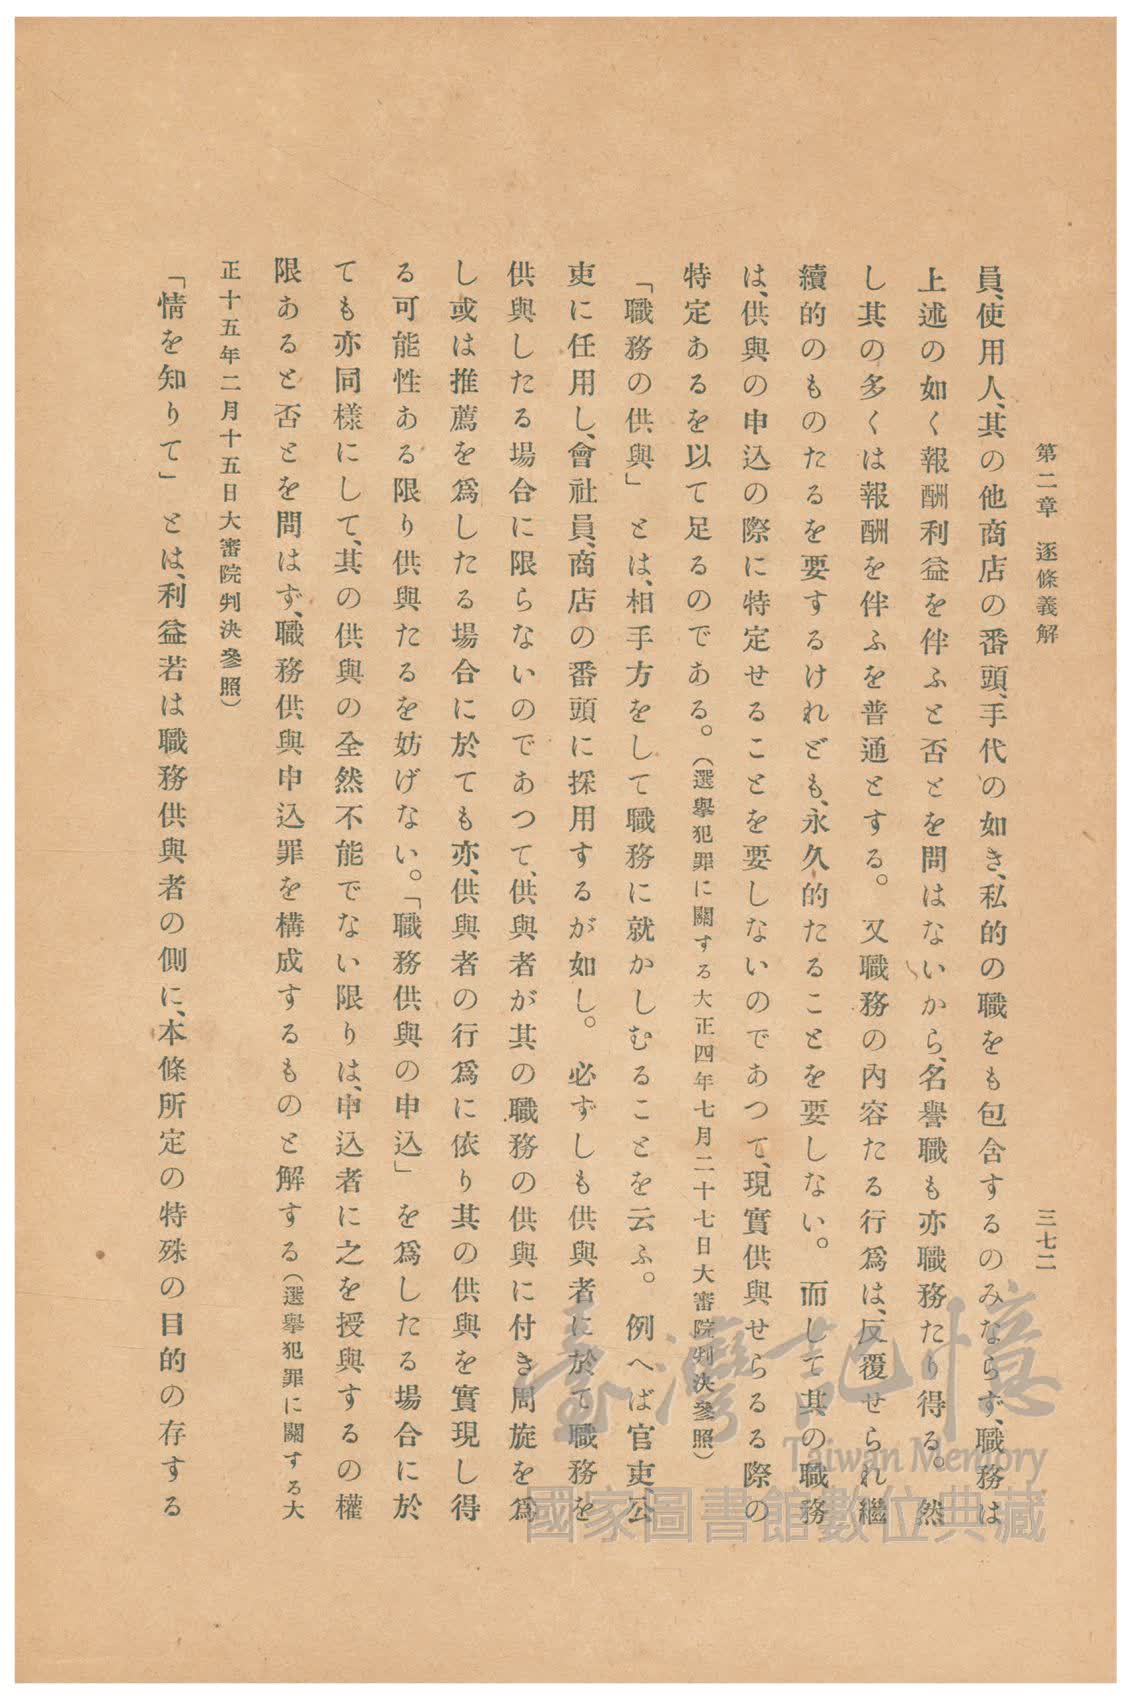 第二章　逐條義解
三七二
員、使用人、其の他商店の番頭、手代の如き、私的の職をも包含するのみならず、職務は
上述の如く報酬利益を伴ふと否とを問はないから、名譽職も亦職務たり得る。然
し其の多くは報酬を伴ふを普通とする。又職務の內容たる行爲は、反覆せられ繼
續的のものたるを要するけれども、永久的たることを要しない。而して其の職務
は、供與の申込の際に特定せることを要しないのであつて、現實供與せらるる際の
特定あるを以て足るのである。（選擧犯罪に關する大正四年七月二十七日大審院判決參照）
「職務の供與」とは、相手方をして職務に就かしむることを云ふ。例へば官吏、公
吏に任用し、會社員、商店の番頭に採用するが如し。必ずしも供與者に於て職務を
供與したる場合に限らないのであつて、供與者が其の職務の供與に付き周旋を爲
し或は推薦を爲したる場合に於ても亦、供與者の行爲に依り其の供與を實現し得
る可能性ある限り供與たるを妨げない。「職務供與の申込」を爲したる場合に於
ても亦同樣にして、其の供與の全然不能でない限りは、申込者に之を授與するの權
限あると否とを問はず、職務供與申込罪を構成するものと解する（選擧犯罪に關する大
正十五年二月十五日大審院判決參照）
「情を知りて」とは、利益若は職務供與者の側に、本條所定の特殊の目的の存する
臺灣記憶
Taiwan Memory
國家圖書館數位典藏